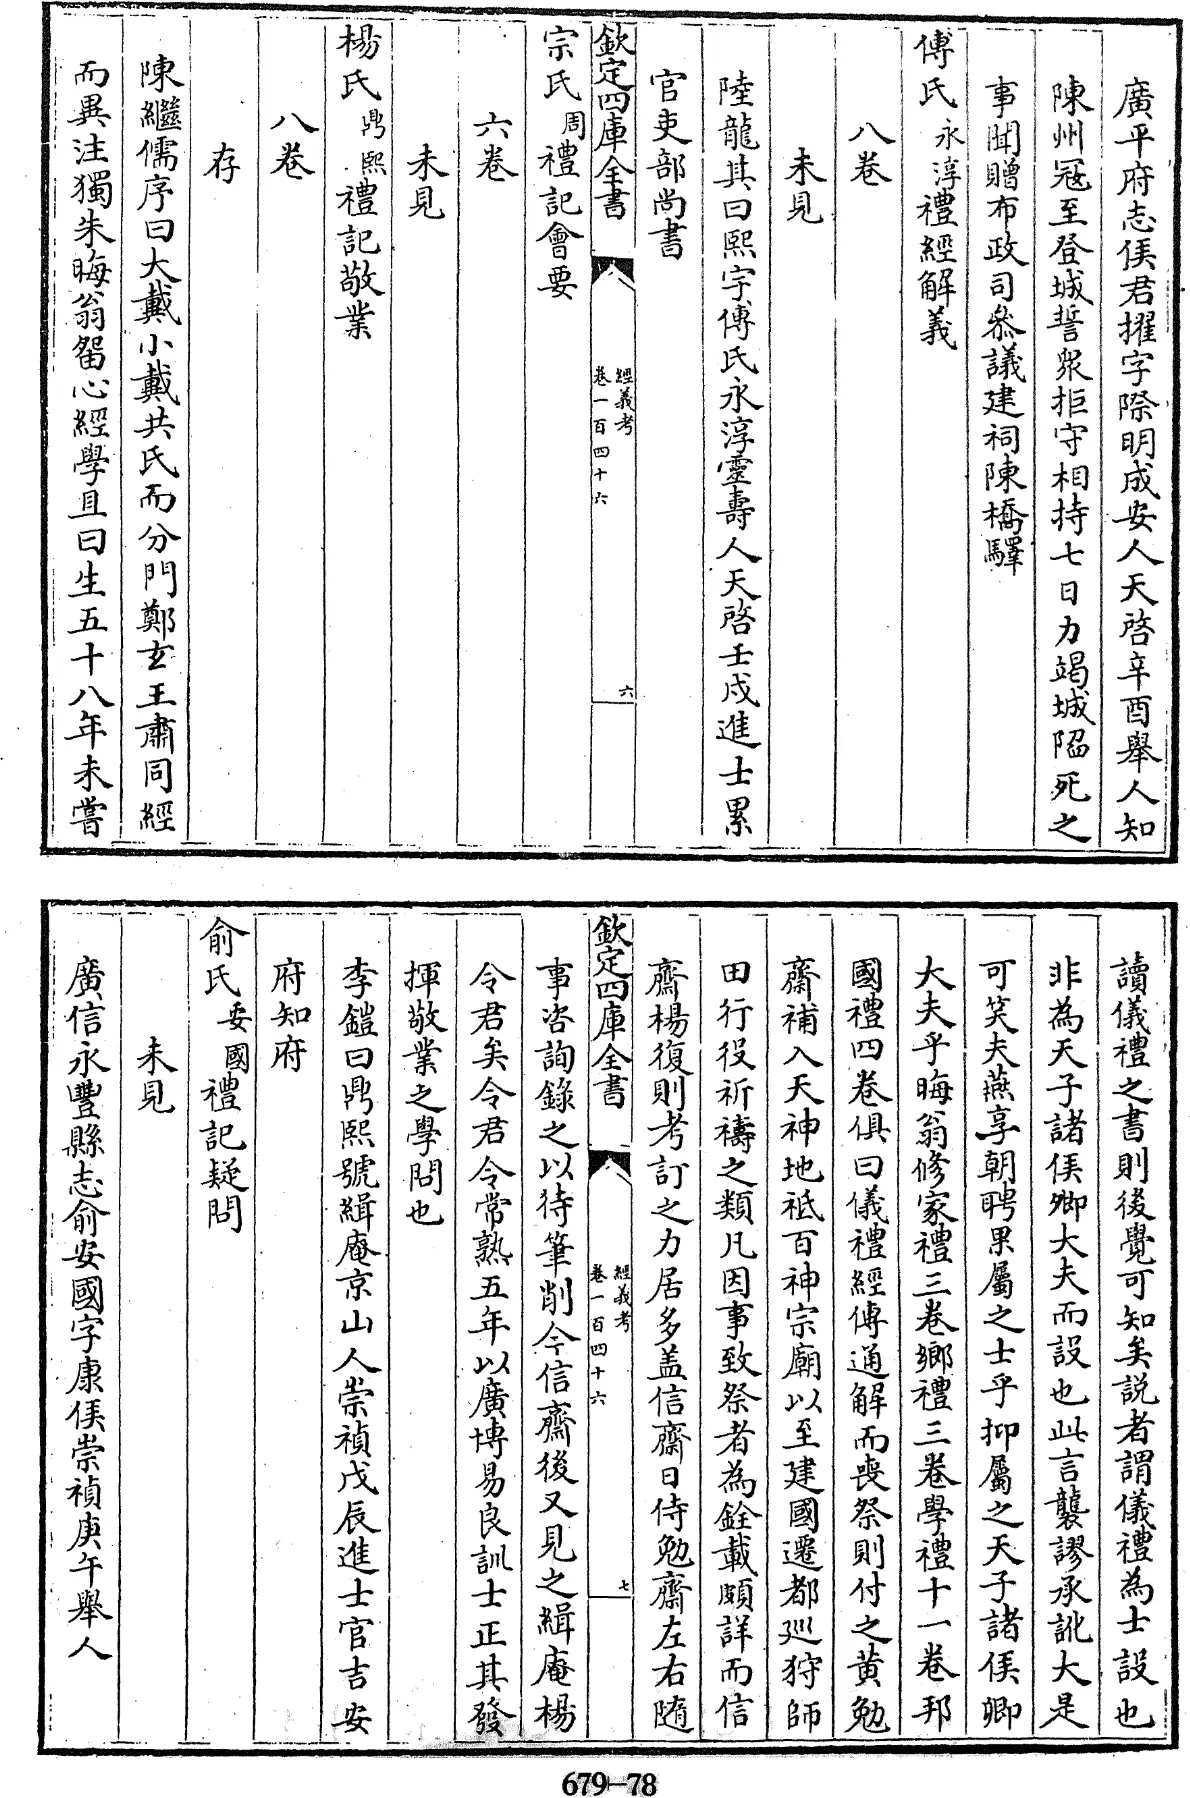 廣平府志侯君擢字際明成安人天啓辛酉舉人知
陳州冦至登城誓衆拒守相持七日力竭城陷死之
事聞贈布政司叅議建祠陳橋驛
傅氏永淳禮經解義
八卷
未見
陸龍其曰熙宇傅氏永淳靈壽人天啓壬戌進士累
官吏部尚書
欽定四庫全書
經義考
卷一百四十六
六
宗氏周禮記會要
六卷
未見
楊氏鼎熙禮記敬業
八卷
存
陳繼儒序曰大戴小戴共氏而分門鄭玄王肅同經
而異注獨朱晦翁留心經學且曰生五十八年未嘗
讀儀禮之書則後覺可知矣説者謂儀禮為士設也
非為天子諸侯卿大夫而設也此言襲謬承訛大是
可笑夫燕享朝聘果屬之士乎抑屬之天子諸侯卿
大夫乎晦翁修家禮三卷鄉禮三卷學禮十一卷邦
國禮四卷俱曰儀禮經傳通解而喪祭則付之黄勉
齋補入天神地祗百神宗廟以至建國遷都巡狩師
田行役祈禱之類凡因事致祭者為銓載頗詳而信
齋楊復則考訂之力居多盖信齋日侍勉齋左右随
欽定四庫全書
經義考
卷一百四十六
七
事咨詢錄之以待筆削今信齋後又見之緝庵楊
令君矣令君令常熟五年以廣博易良訓士正其發
揮敬業之學問也
李鎧曰鼎熙號緝庵京山人崇禎戊辰進士官吉安
府知府
俞氏安國禮記疑問
未見
廣信永豐縣志俞安國字康侯崇禎庚午舉人
679-78